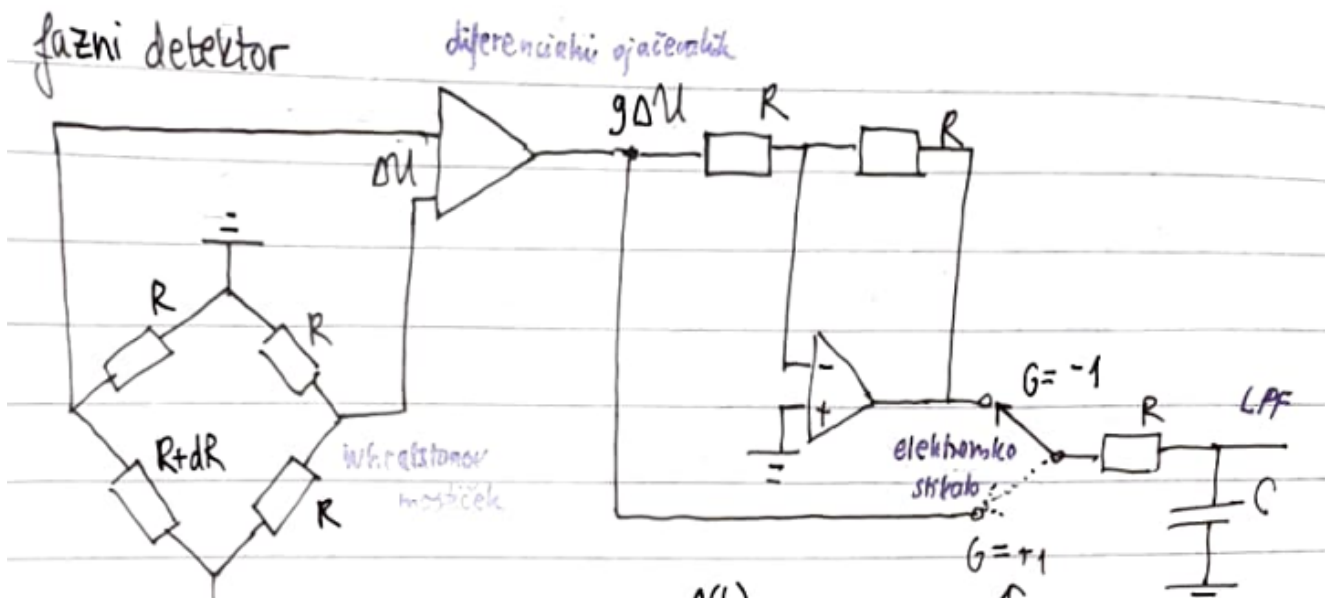 fazni detektor
diferencialni ojačevalnik
gΔU
R
R
ΔU
R
R
-
+
G = -1
R
LPF
R+dR
R
wheatstonov
mostiček
elektronsko
stikalo
C
G = +1